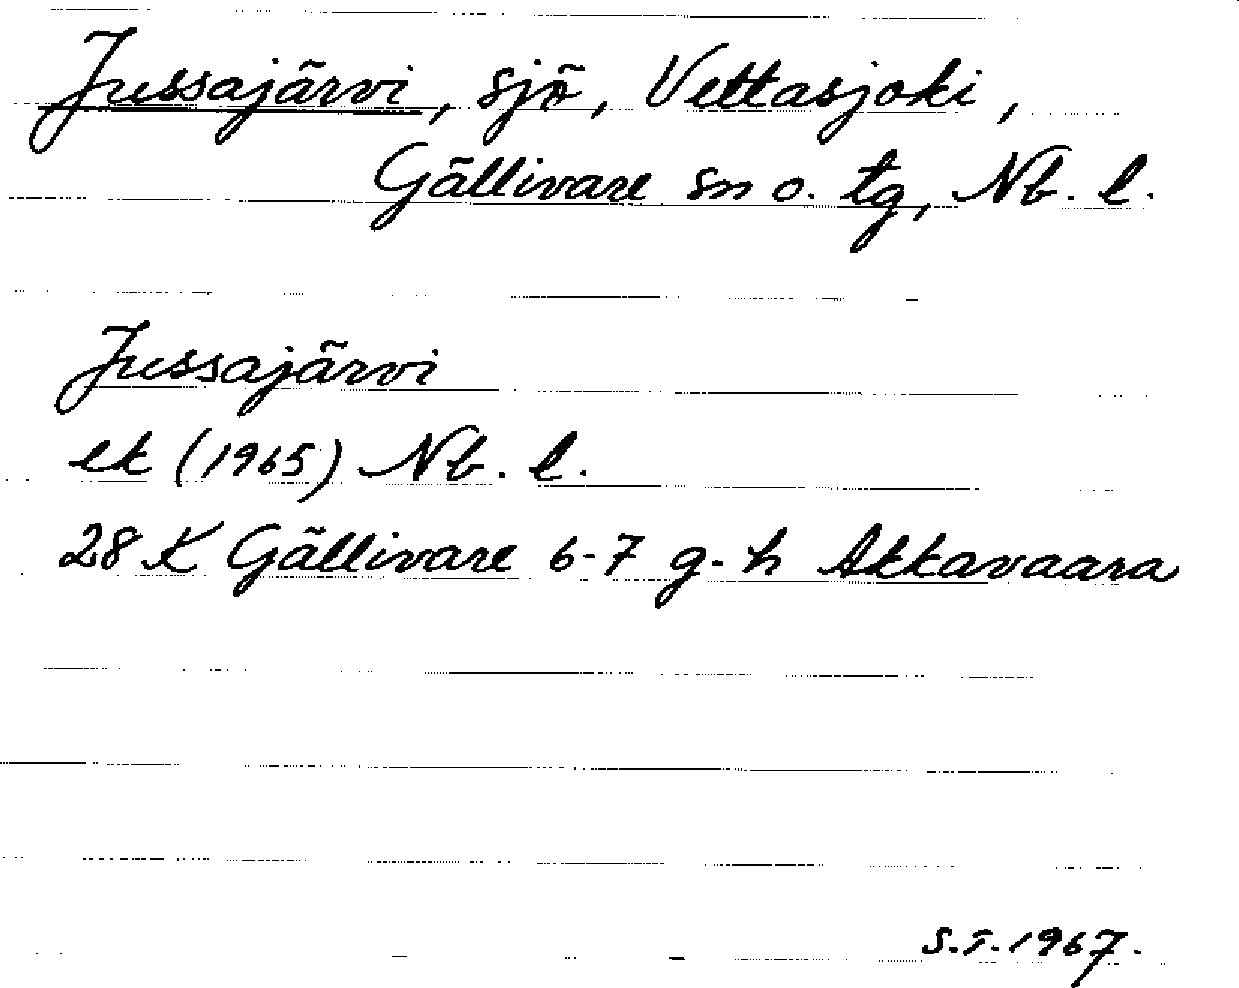 Jussajärvi, sjö, Vettasjoki,
Gällivare sn o. tg, Nb. l.
Jussajärvi
ek (1965) Nb. l.
28 K Gällivare 6-7 g-h Akkavaara
S.T. 1967.